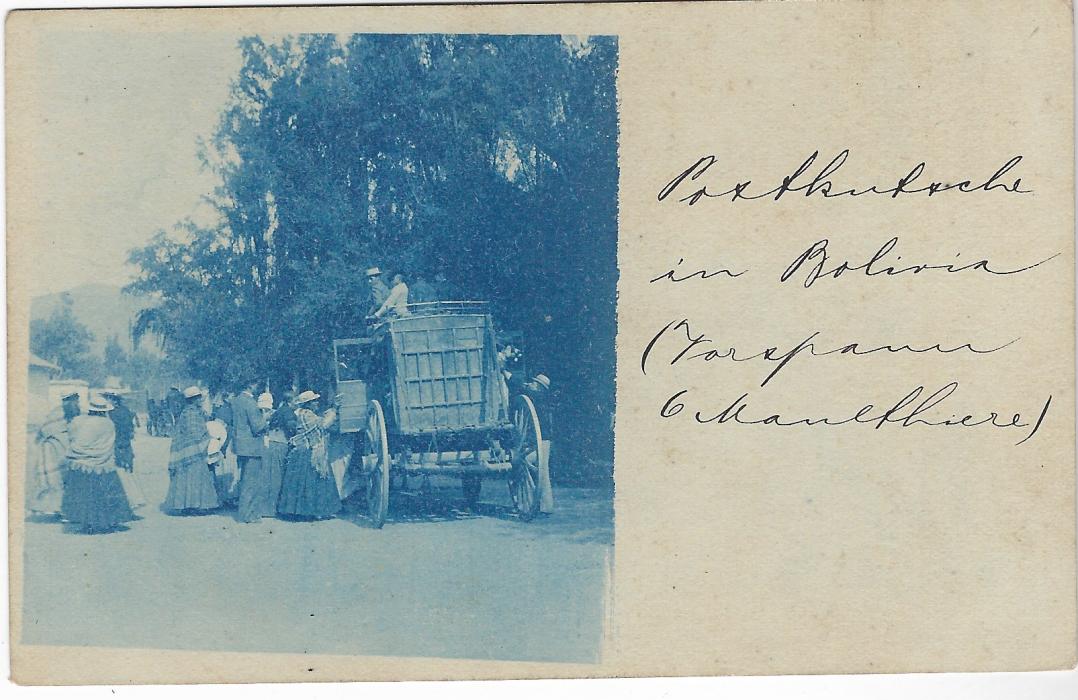 Postkutsche
in Bolivia
(Vorspann
6 Maulthiere)